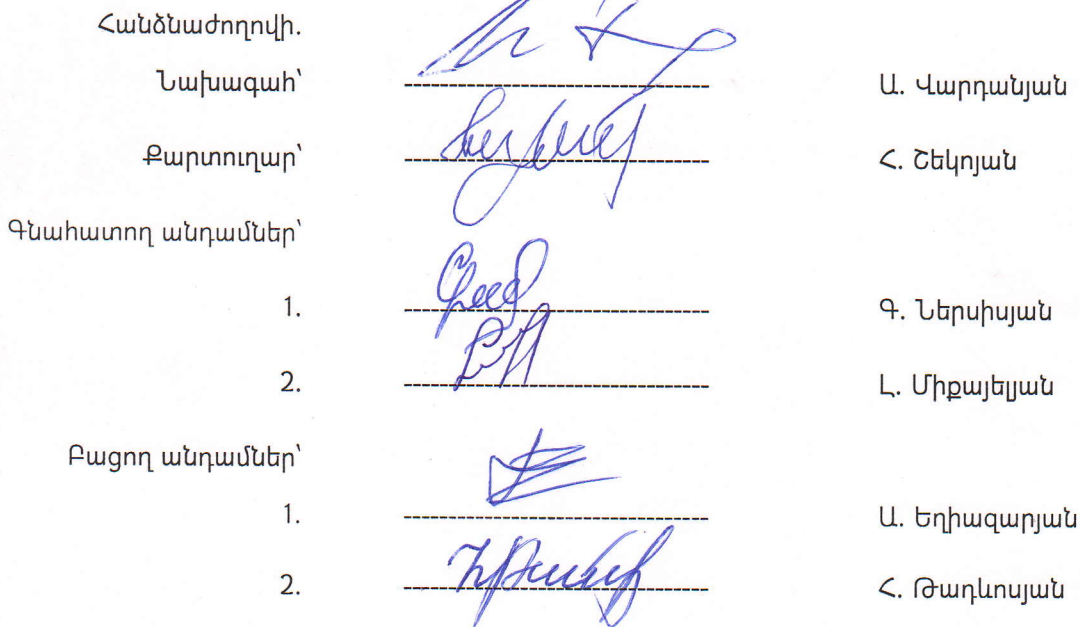 Հանձնաժողովի.
Նախագահ՝ Ա. Վարդանյան
Քարտուղար՝ Հ. Շեկոյան
Գնահատող անդամներ՝
1. Գ. Ներսիսյան
2. Լ. Միքայելյան
Բացող անդամներ՝
1. Ա. Եղիազարյան
2. Հ. Թադևոսյան